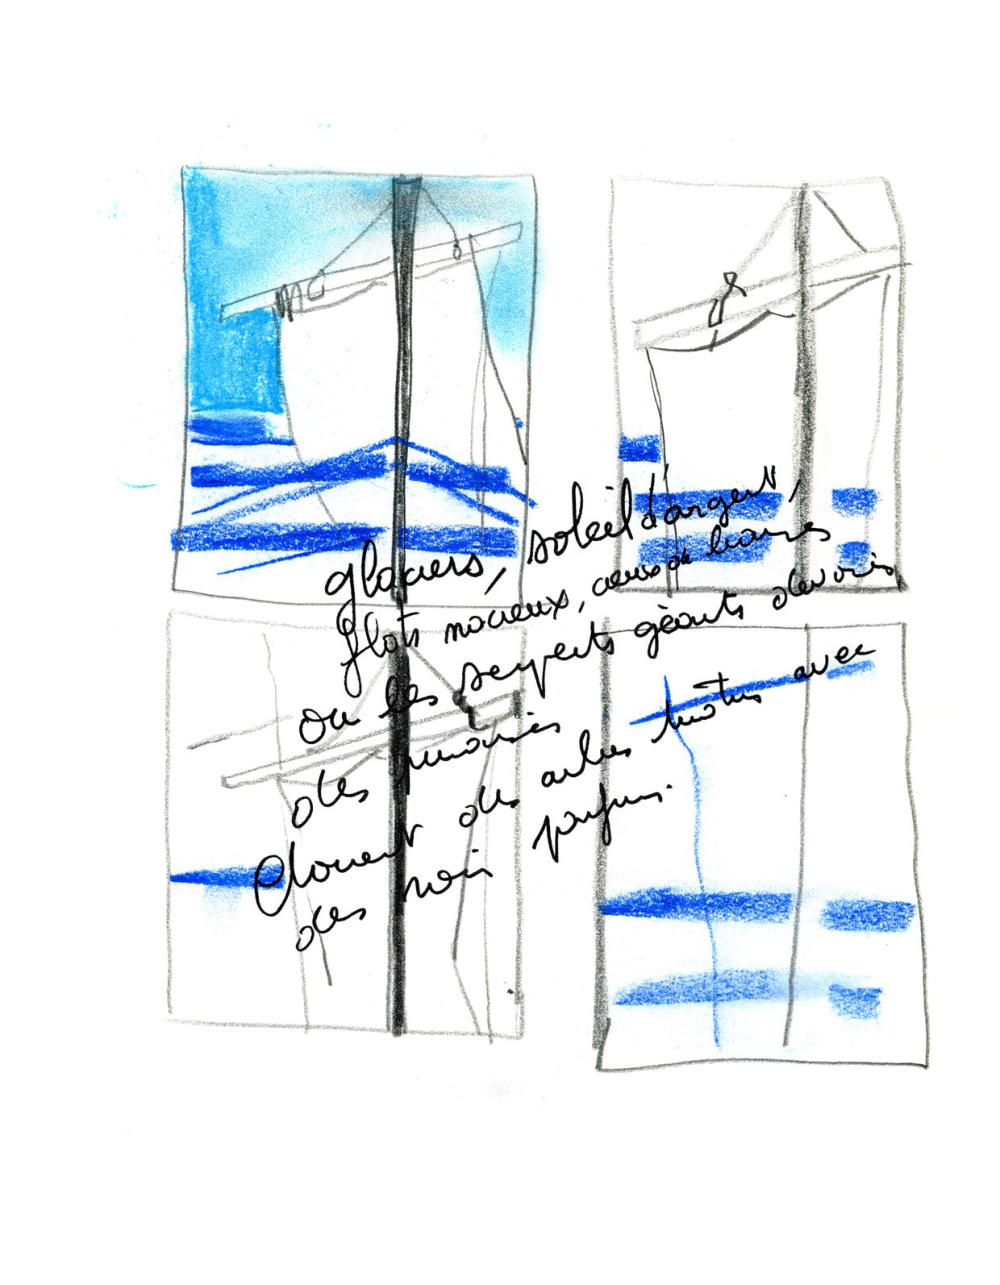 glaciers, soleil d'argent,
flots nacreux, cieux de braises
ou les serpents géants dévorés
des punaises
Choient des arbres tordus avec
des noir parfums.